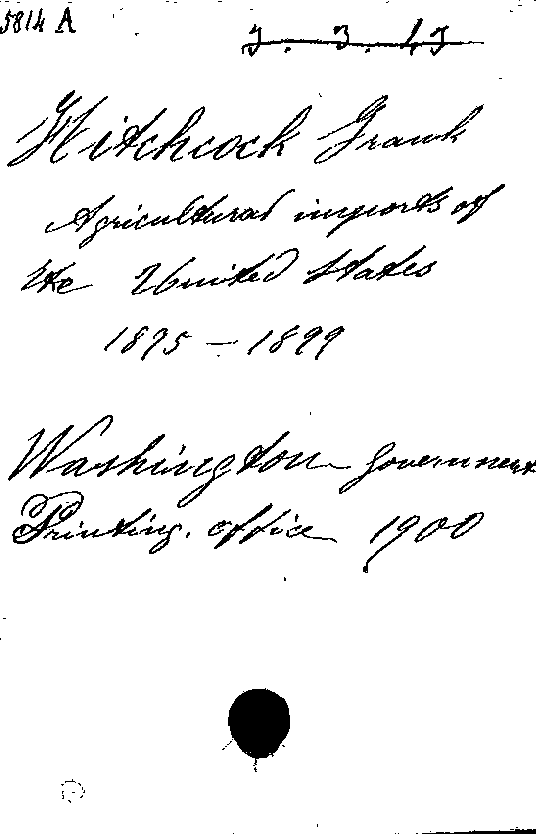 5814 A
Hitchcock Frank
Agricultural imports of
the United States
1895 – 1899
Washington Government
Printing. office 1900